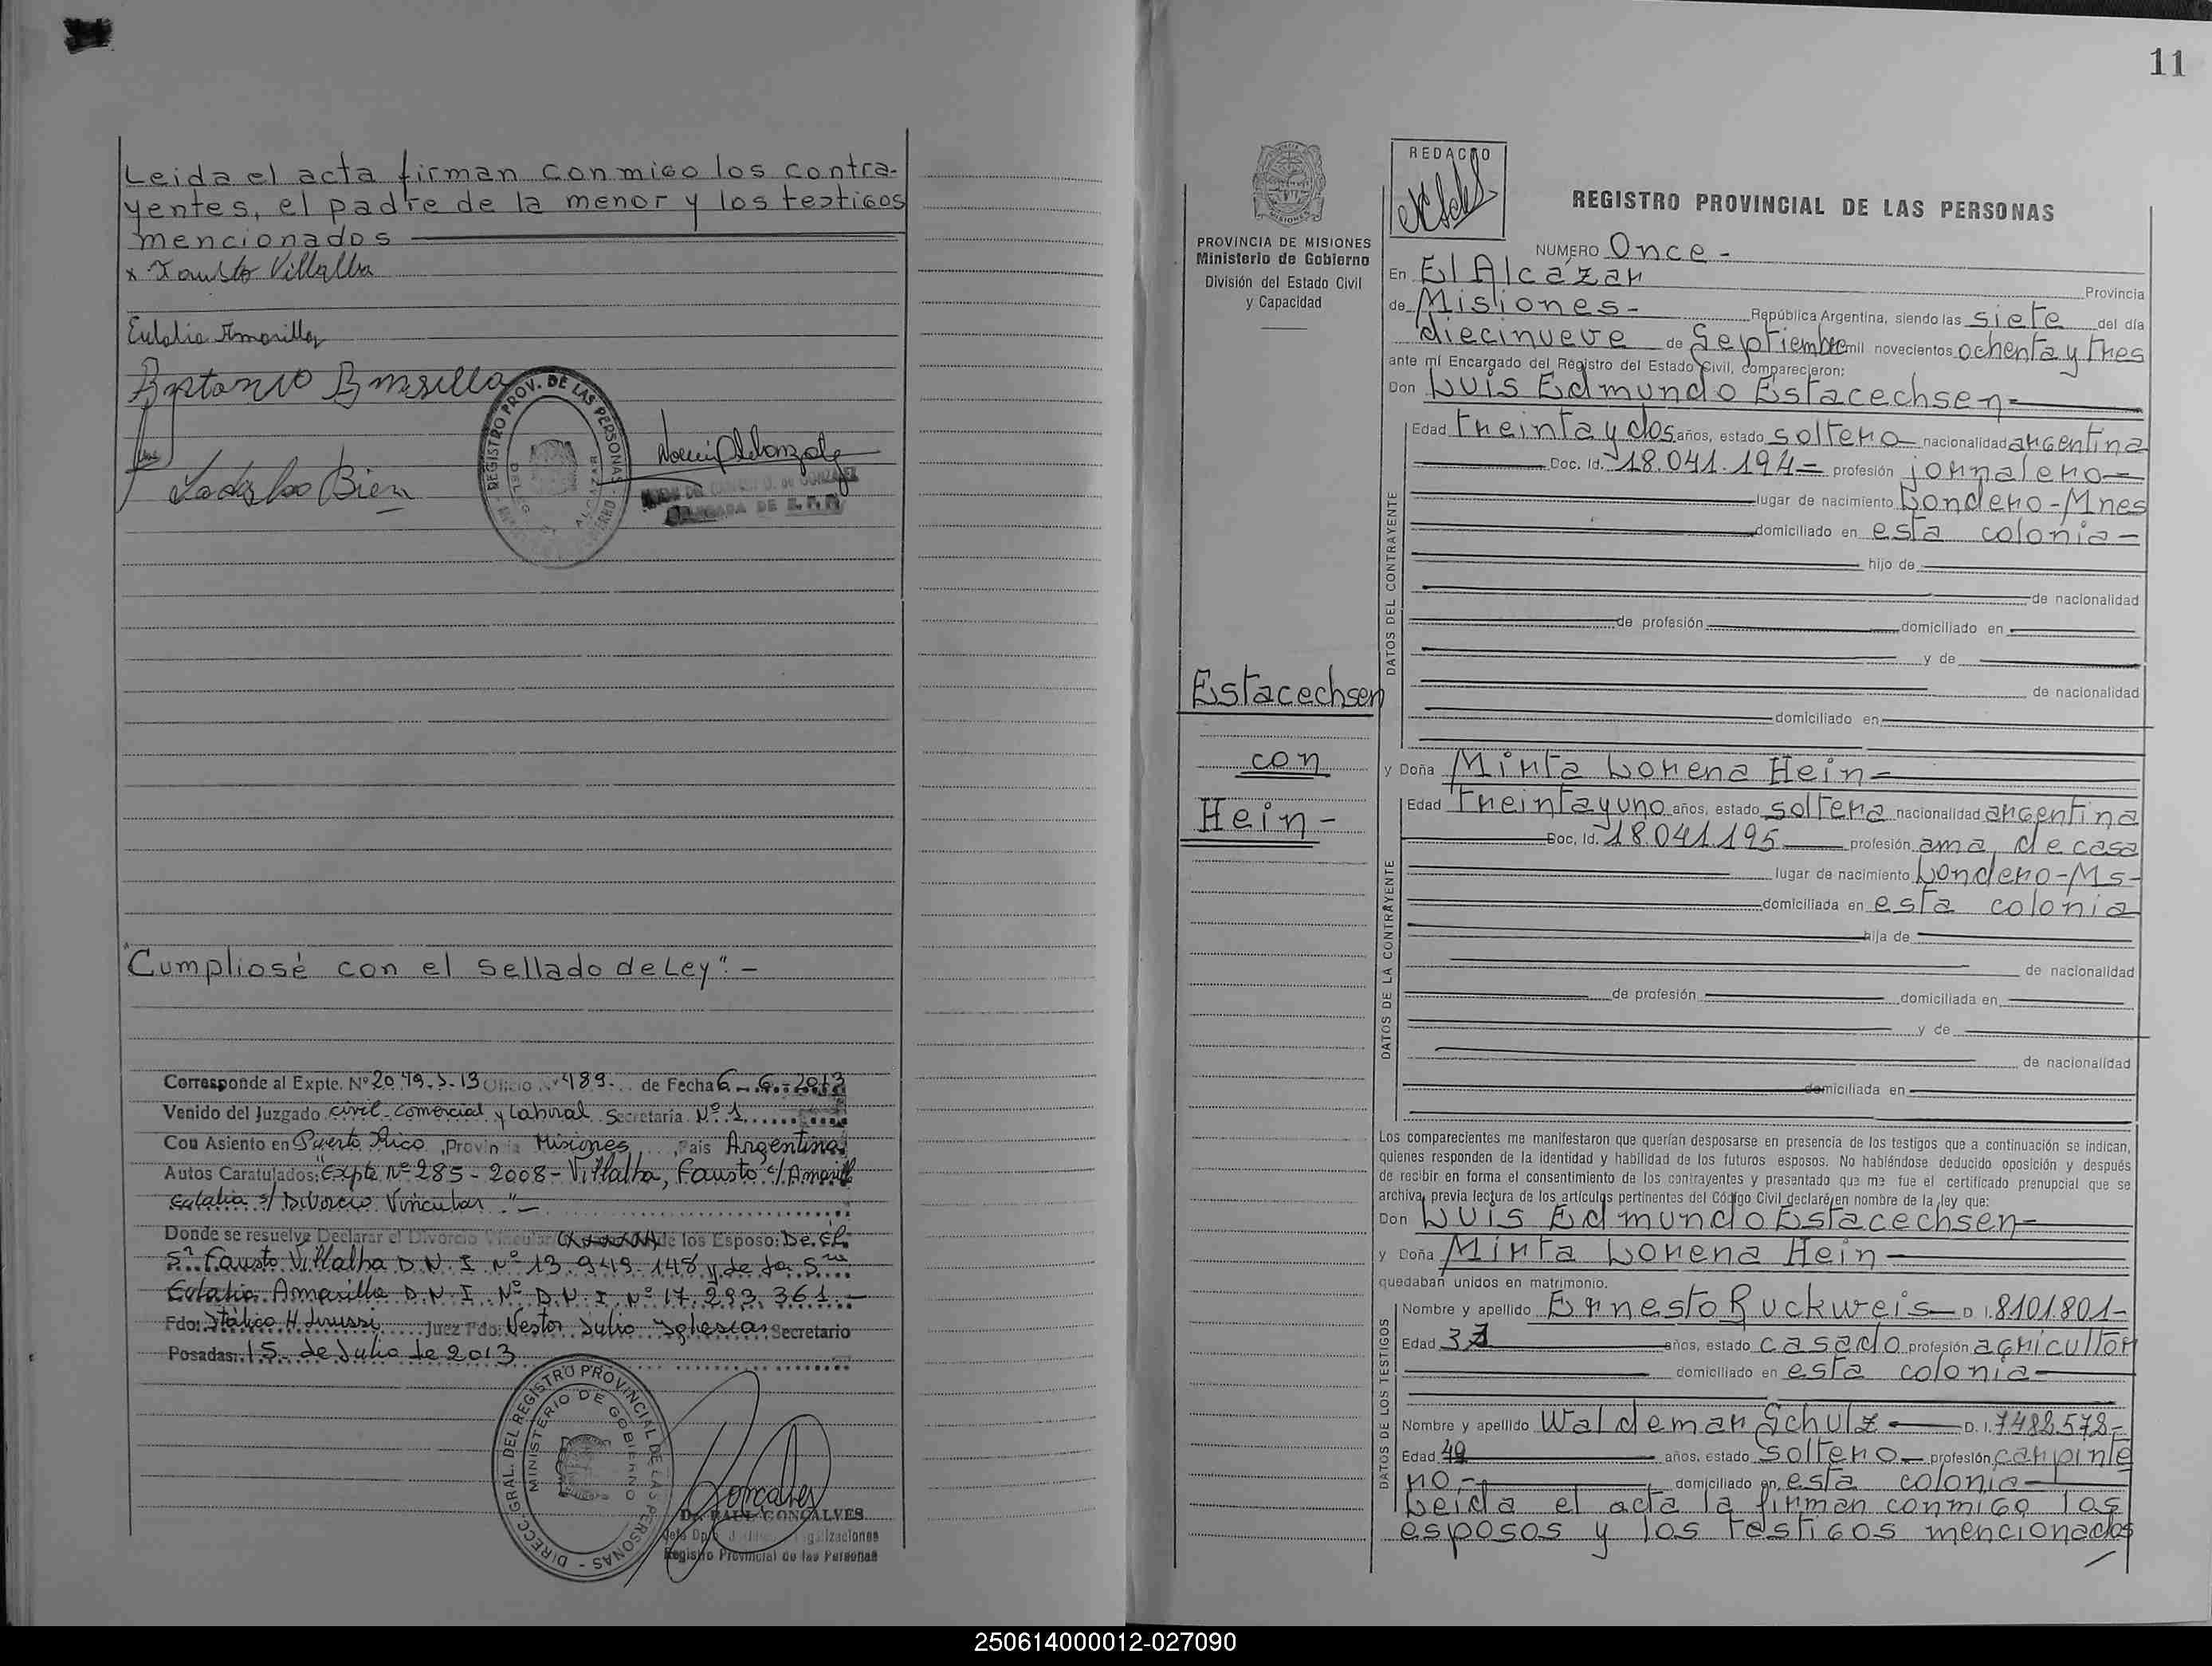 Leida el acta firman conmigo los contra-
yentes, el padre de la menor y los testigos
mencionados
x Fausto Villalba
Eulalia Amarilla
Ladislao Bien
REGISTRO PROV. DE LAS PERSONAS
DELEGADA DE E. P. P.
"Cumpliosé con el sellado de Ley". -
Corresponde al Expte. Nº 2079-S-13 Oficio Nº 489 de Fecha 6-6-2013
Venido del Juzgado civil-Comercial y Laboral Secretaria Nº 1
Con Asiento en Puerto Rico, Provincia Misiones, País Argentina
Autos Caratulados: "Expte nº 285-2008- Villalba, Fausto c/ Amarilla
Eulalia s/ Divorcio Vincular". -
Donde se resuelve Declarar el Divorcio Vincular de los Esposo: De. El
Sr. Fausto Villalba D.N.I. nº 13.949.148 y de la Sra
Eulalia Amarilla D.N.I. Nº D.N.I. Nº 17.293.361 -
Fdo: Juez Fdo: Nestor Julio Iglesias Secretario
Posadas: 15 de Julio de 2013
DIRECC. GRAL. DEL REGISTRO PROVINCIAL DE LAS PERSONAS
MINISTERIO DE GOBIERNO
Dr. RAUL GONCALVES
Registro Provincial de las Personas
11
PROVINCIA DE MISIONES
Ministerio de Gobierno
División del Estado Civil
y Capacidad
Estacechsen
con
Hein-
REDACTO
REGISTRO PROVINCIAL DE LAS PERSONAS
NUMERO Once -
En El Alcázar Provincia
de Misiones- República Argentina, siendo las siete del día
diecinueve de Septiembre mil novecientos ochenta y tres
ante mí Encargado del Registro del Estado Civil, comparecieron:
Don Luis Edmundo Estacechsen-
DATOS DEL CONTRAYENTE
Edad treinta y dos años, estado soltero nacionalidad argentina
Doc. Id. 18.041.194- profesión jornalero-
lugar de nacimiento Londero-Mnes
domiciliado en esta colonia-
hijo de
de nacionalidad
de profesión domiciliado en
y de
de nacionalidad
domiciliado en
y Doña Mirta Lorena Hein-
DATOS DE LA CONTRAYENTE
Edad treinta y uno años, estado soltera nacionalidad argentina
Doc. Id. 18.041.195 profesión ama de casa
lugar de nacimiento Londero-Ms-
domiciliada en esta colonia
hija de
de nacionalidad
de profesión domiciliada en
y de
de nacionalidad
domiciliada en
Los comparecientes me manifestaron que querían desposarse en presencia de los testigos que a continuación se indican,
quienes responden de la identidad y habilidad de los futuros esposos. No habiéndose deducido oposición y después
de recibir en forma el consentimiento de los contrayentes y presentado que me fue el certificado prenupcial que se
archiva, previa lectura de los artículos pertinentes del Código Civil declaré en nombre de la ley que:
Don Luis Edmundo Estacechsen-
y Doña Mirta Lorena Hein-
quedaban unidos en matrimonio.
DATOS DE LOS TESTIGOS
Nombre y apellido Ernesto Ruckweis- D. I. 8101.801-
Edad 37 años, estado casado profesión agricultor
domiciliado en esta colonia-
Nombre y apellido Waldemar Schulz D. I. 7482.578-
Edad 49 años, estado soltero- profesión carpinte
ro- domiciliado en esta colonia-
Leida el acta la firman conmigo los
esposos y los testigos mencionados
250614000012-027090